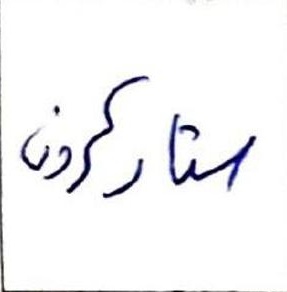 استار کردن